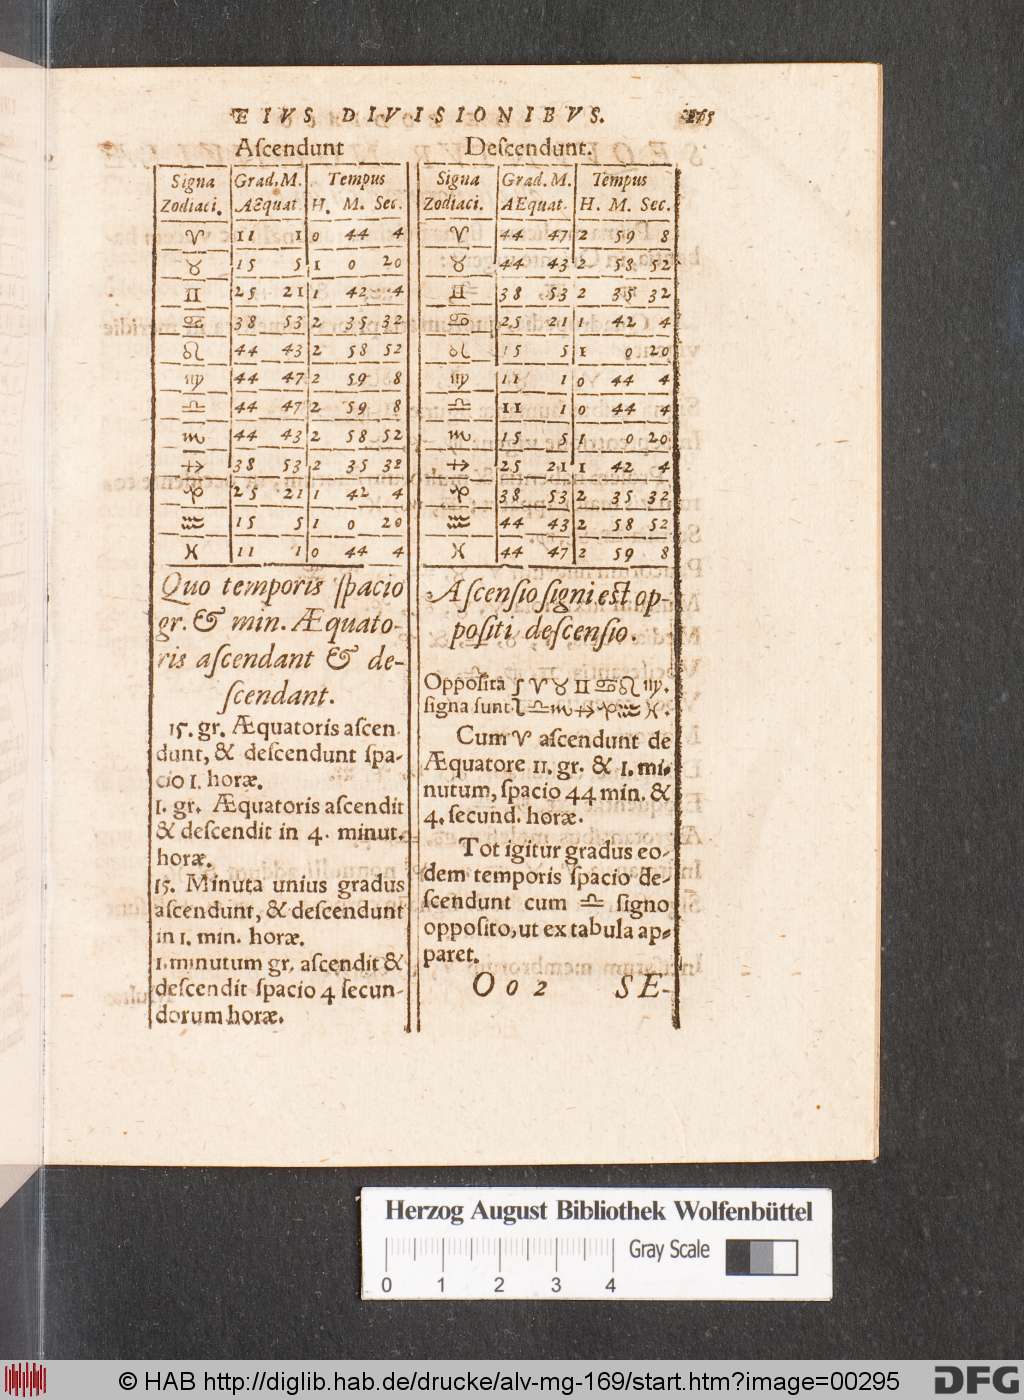 EIVS DIVISIONIBVS.
Ascendunt
Signa Grad. M. Tempus
Zodiaci. AEquat. H. M. Sec.
♈ 11 1 0 44 4
♉ 15 5 1 0 20
♊ 25 21 1 42 4
♋ 38 53 2 35 32
♌ 44 43 2 58 52
♍ 44 47 2 59 8
♎ 44 47 2 59 8
♏ 44 43 2 58 52
♐ 38 53 2 35 32
♑ 25 21 1 42 4
♒ 15 5 1 0 20
♓ 11 1 0 44 4
Quo temporis ſpacio
gr. & min. Æquato-
ris aſcendant & de-
ſcendant.
15. gr. Æquatoris aſcen
dunt, & deſcendunt ſpa-
cio 1. horæ.
1. gr. Æquatoris aſcendit
& deſcendit in 4. minut.
horæ.
15. Minuta unius gradus
aſcendunt, & deſcendunt
in 1. min. horæ.
1. minutum gr. aſcendit &
deſcendit ſpacio 4 ſecun-
dorum horæ.
Deſcendunt.
Signa Grad. M. Tempus
Zodiaci. AEquat. H. M. Sec.
♈ 44 47 2 59 8
♉ 44 43 2 58 52
♊ 38 53 2 35 32
♋ 25 21 1 42 4
♌ 15 5 1 0 20
♍ 11 1 0 44 4
♎ 11 1 0 44 4
♏ 15 5 1 0 20
♐ 25 21 1 42 4
♑ 38 53 2 35 32
♒ 44 43 2 58 52
♓ 44 47 2 59 8
Aſcenſio ſigni eſt op-
poſiti deſcenſio.
Oppoſita ♈ ♉ ♊ ♋ ♌ ♍.
ſigna ſunt ♎ ♏ ♐ ♑ ♒ ♓.
Cum ♈ aſcendunt de
Æquatore 11. gr. & 1. mi-
nutum, ſpacio 44 min. &
4. ſecund. horæ.
Tot igitur gradus eo-
dem temporis ſpacio de-
ſcendunt cum ♎ ſigno
oppoſito, ut ex tabula ap-
paret.
O o 2 SE-
Herzog August Bibliothek Wolfenbüttel
Gray Scale
0 1 2 3 4
© HAB http://diglib.hab.de/drucke/alv-mg-169/start.htm?image=00295
DFG